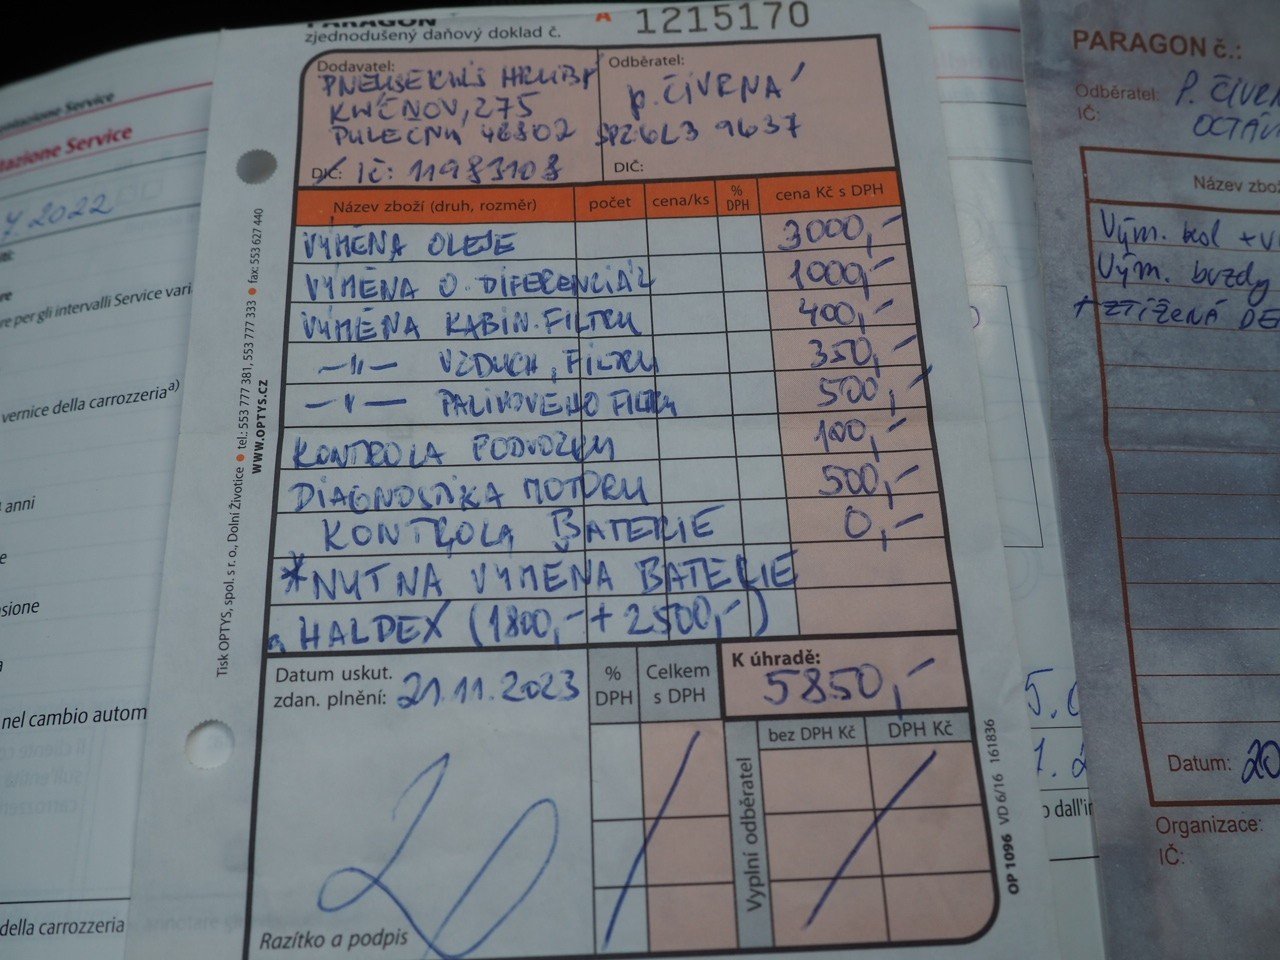 entazione Service
tazione Service
7 2022
re per gli intervalli Service vari
vernice della carrozzeria a)
anni
sione
nel cambio autom
della carrozzeria
PARAGON
zjednodušený daňový doklad č. A 1215170
Dodavatel:
PNEUSERVIS HRUBÝ
275
PULEČNÝ 46802
DIČ: IČ: 11983108
Odběratel:
p. ČIVRNÁ
SPZ 6L3 9637
DIČ:
Název zboží (druh, rozměr) počet cena/ks % DPH cena Kč s DPH
VÝMĚNA OLEJE 3000,-
VÝMĚNA O. DIFERENCIÁL 1000,-
VÝMĚNA KABIN. FILTRU 400,-
—"— VZDUCH. FILTRU 350,-
—"— PALIVOVÉHO FILTRU 500,-
KONTROLA PODVOZKU 100,-
DIAGNOSTIKA MOTORU 500,-
KONTROLA BATERIE 0,-
*NUTNA VÝMĚNA BATERIE
a HALDEX (1800,- + 2500,-)
Datum uskut.
zdan. plnění: 21.11.2023
% DPH
Celkem s DPH
K úhradě:
5850,-
bez DPH Kč DPH Kč
Vyplní odběratel
Razítko a podpis
OP 1096 VD 6/16 161836
Tisk OPTYS, spol. s r. o., Dolní Životice • tel.: 553 777 381, 553 777 333 • fax: 553 627 440
WWW.OPTYS.CZ
PARAGON č.:
Odběratel: P. ČIVR
IČ: OCTÁV
Název zbož
Vým. kol + V
Vým. brzdy
+ ZTÍŽENÁ DE
Datum: 20
Organizace:
IČ: